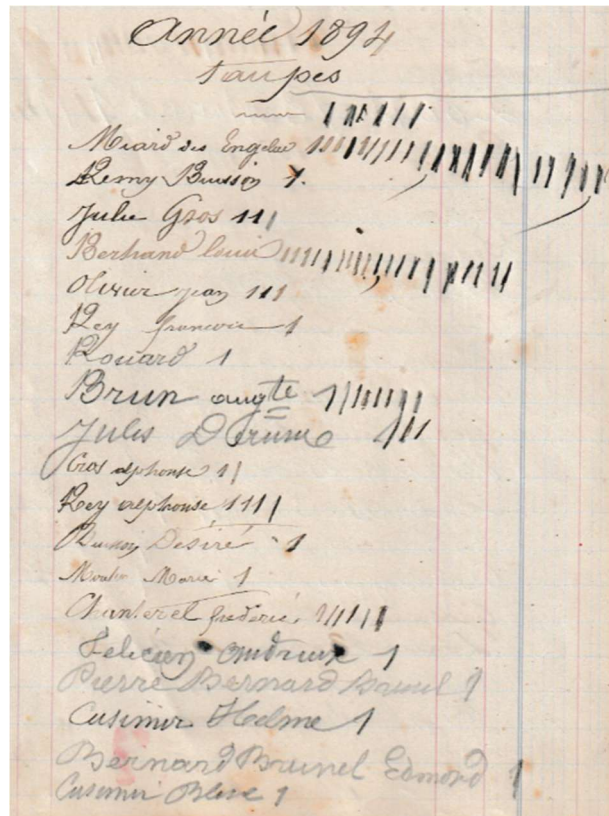 Année 1894
taupes
Miard des
Remy Buisson 1
Julie Gros 111
Bertrand louis
Olivier jean 111
Rey francois 1
Rouard 1
Brun augte
Jules 111
Gros alphonse 11
Rey alphonse 1111
Buisson Désiré 1
Marie 1
Chanterel frederic 111111
Felicien 1
Pierre Bernard Brunel 1
Casimir Helme 1
Bernard Brunel Edmond 1
Casimir 1